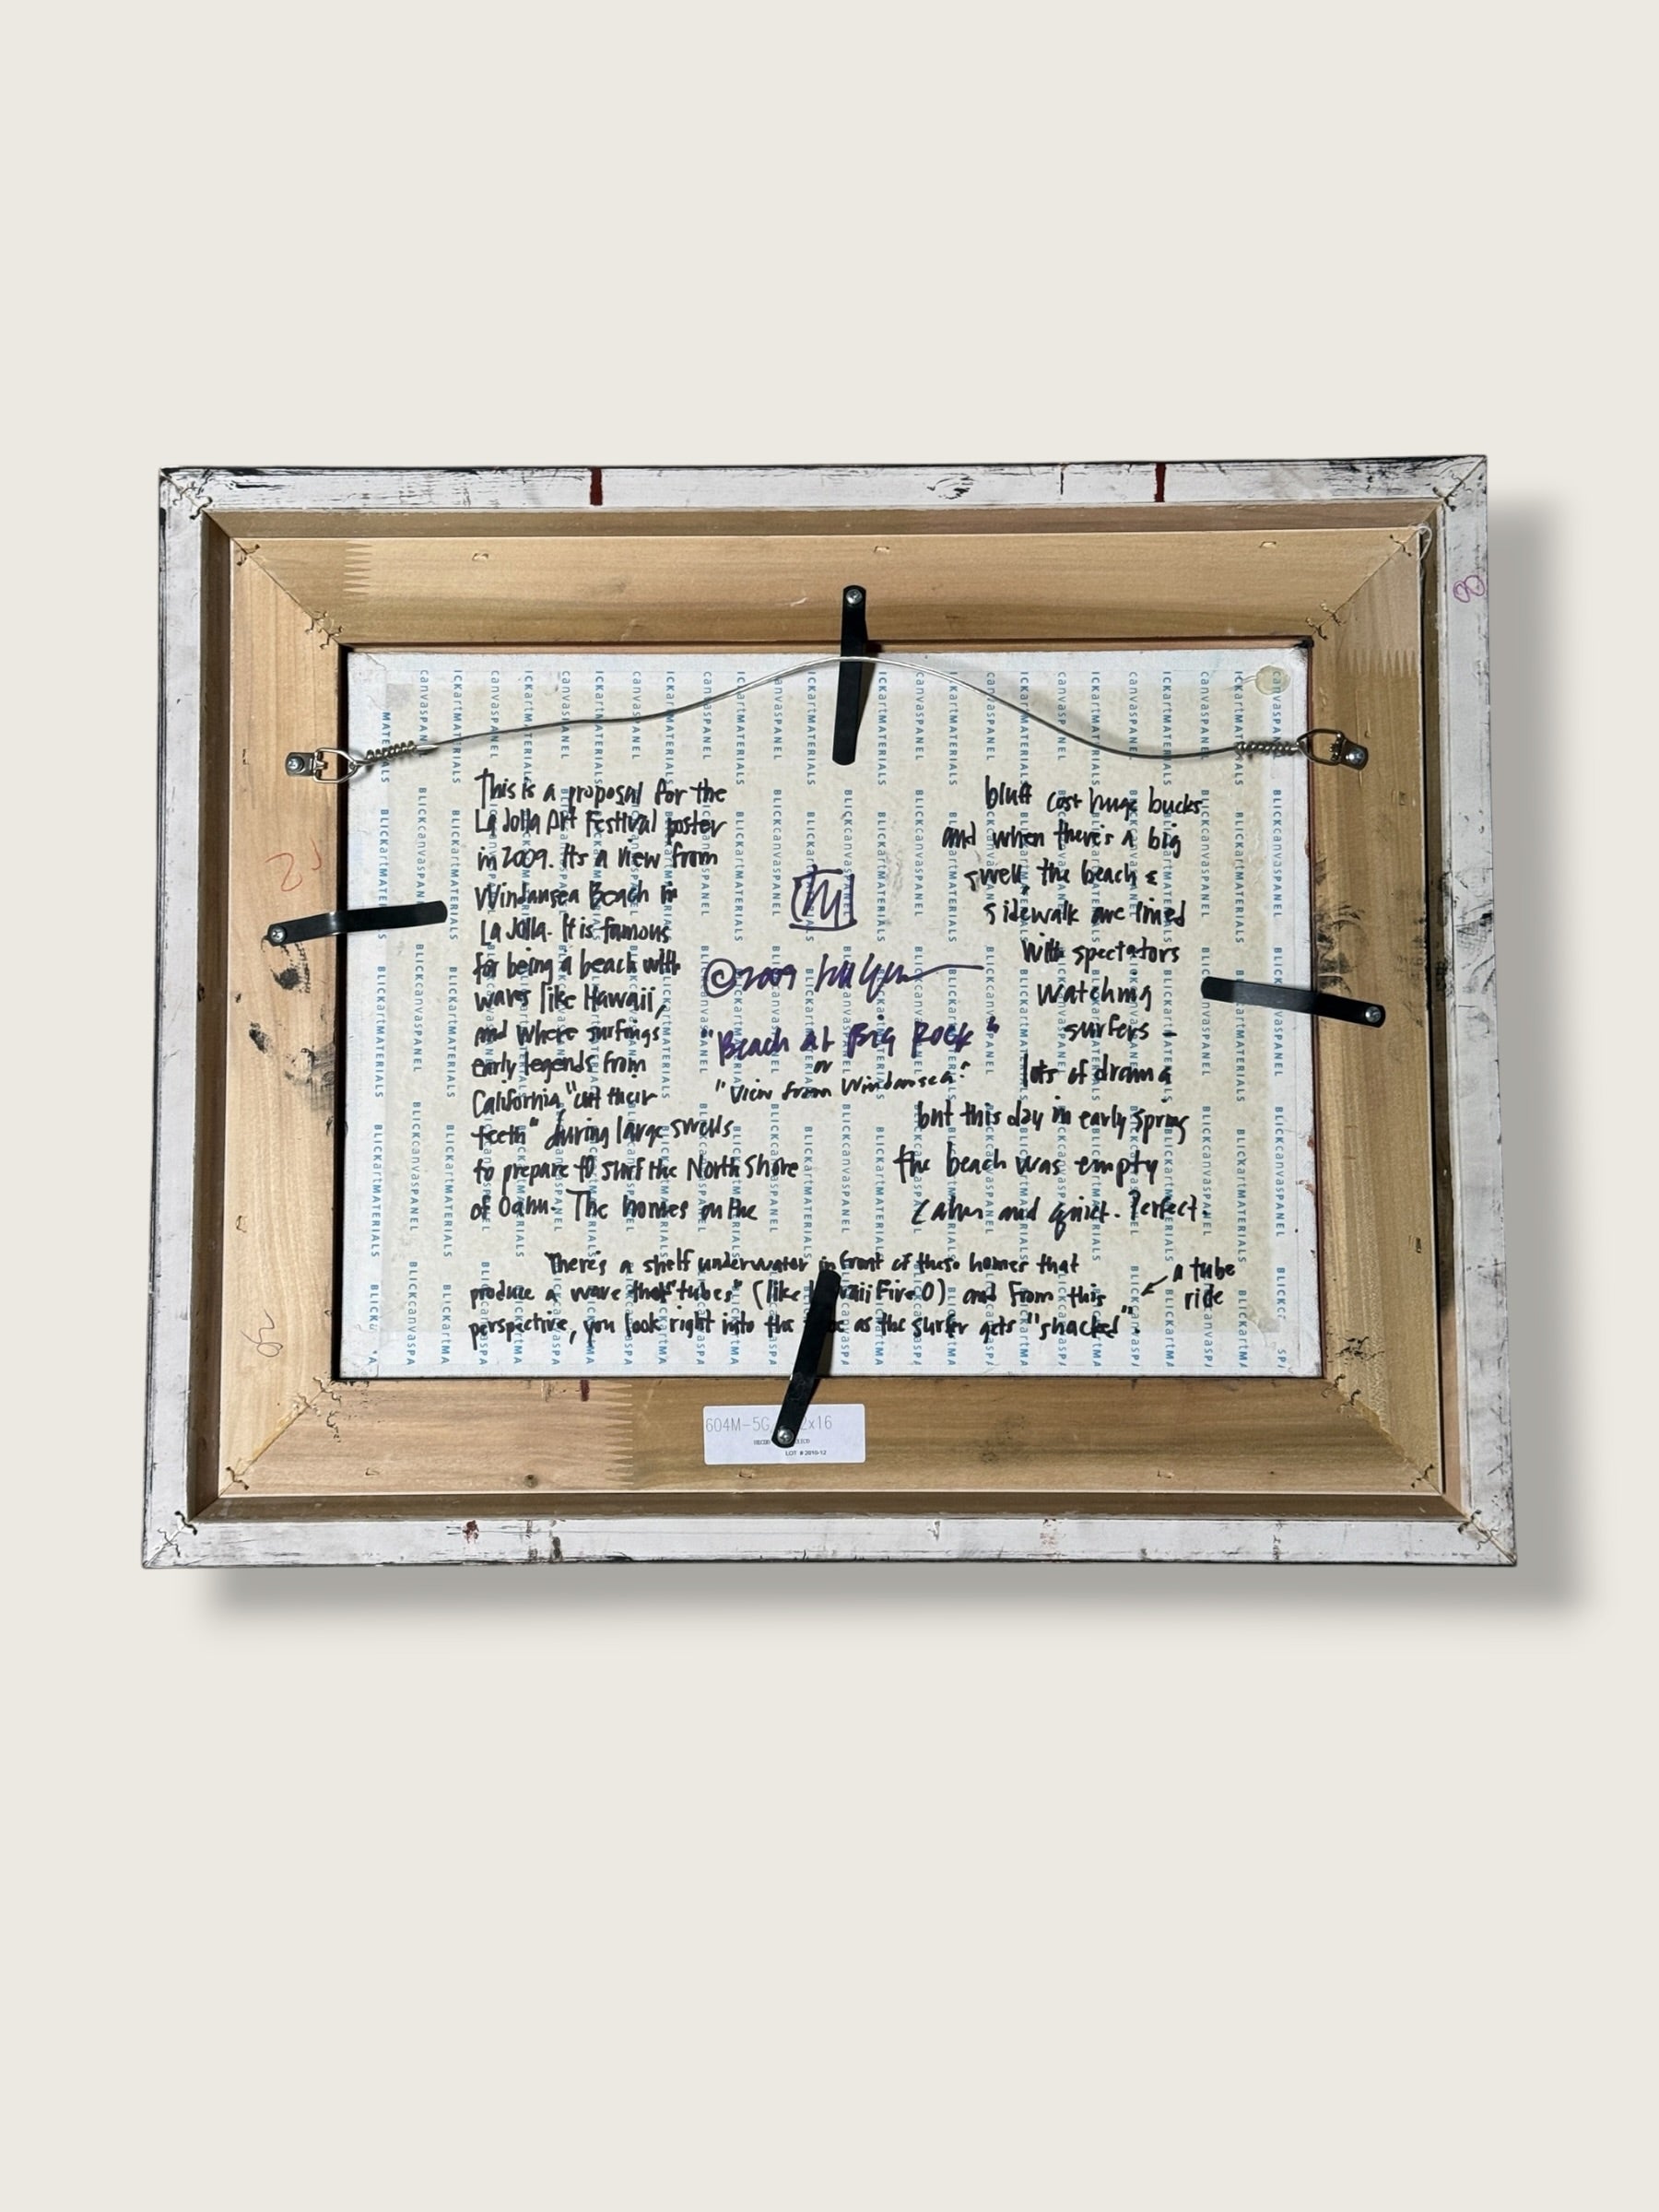 This is a proposal for the
La Jolla Art Festival poster
in 2009. Its a view from
Windansea Beach in
La Jolla. It is famous
for being a beach with
waves like Hawaii,
and where surfings
early legends from
California "cut their
teeth" during large swells
to prepare to surf the North Shore
of Oahu. The homes on the
bluff cost huge bucks
and when there's a big
swell, the beach &
sidewalk are lined
with spectators
watching
surfers –
lots of drama
but this day in early spring
the beach was empty
calm and quiet. Perfect.
©2009
"Beach at Big Rock"
or
"View from Windansea"
There's a shelf underwater in front of these homes that
produce a wave that "tubes" (like Hawaii Five O) and from this
perspective, you look right into the as the surfer gets "shacked".
← a tube
ride
604M-5G 2x16
LOT # 2810-12
BLICK art MATERIALS
BLICK canvas PANEL